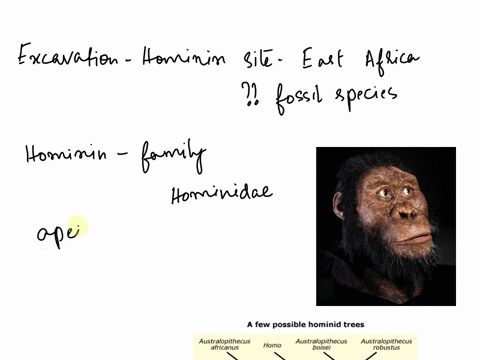 Excavation - Hominin site - East Africa
?? fossil species
Hominin - family
Hominidae
ape
A few possible hominid trees
Australopithecus africanus Homo Australopithecus boisei Australopithecus robustus